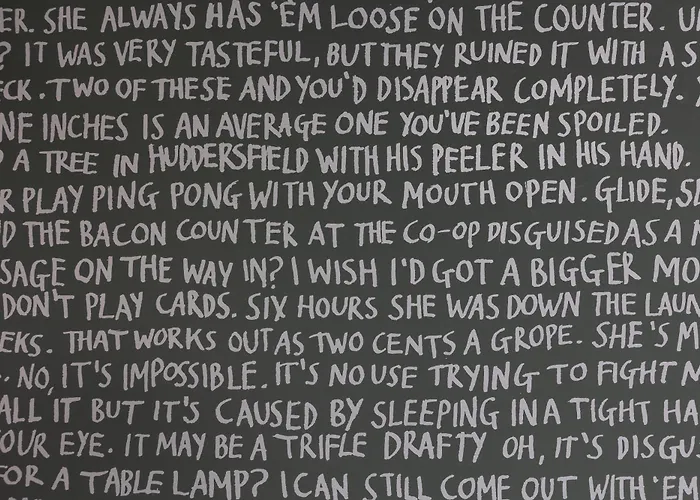 ER. SHE ALWAYS HAS 'EM LOOSE ON THE COUNTER. U
? IT WAS VERY TASTEFUL, BUT THEY RUINED IT WITH A S
ECK. TWO OF THESE AND YOU'D DISAPPEAR COMPLETELY.
NE INCHES IS AN AVERAGE ONE YOU'VE BEEN SPOILED.
A TREE IN HUDDERSFIELD WITH HIS PEELER IN HIS HAND.
R PLAY PING PONG WITH YOUR MOUTH OPEN. GLIDE, SL
D THE BACON COUNTER AT THE CO-OP DISGUISED AS A
SAGE ON THE WAY IN? I WISH I'D GOT A BIGGER MO
DON'T PLAY CARDS. SIX HOURS SHE WAS DOWN THE LAU
EKS. THAT WORKS OUT AS TWO CENTS A GROPE. SHE'S M
. NO, IT'S IMPOSSIBLE. IT'S NO USE TRYING TO FIGHT M
ALL IT BUT IT'S CAUSED BY SLEEPING IN A TIGHT HA
OUR EYE. IT MAY BE A TRIFLE DRAFTY OH, IT'S DISGU
FOR A TABLE LAMP? I CAN STILL COME OUT WITH 'EM